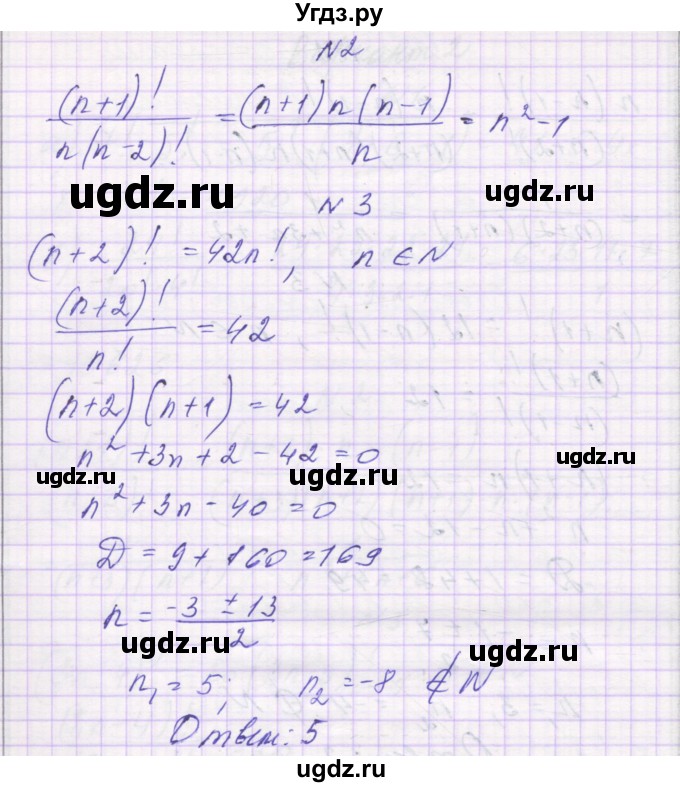 Угдз.ру
N2
(n+1)! / n(n-2)! = (n+1)n(n-1) / n = n²-1
ugdz.ru ugdz.ru
N3
(n+2)! = 42n!, n ∈ N
(n+2)! / n! = 42
ugdz.ru
(n+2)(n+1) = 42
n²+3n+2-42=0
ugdz.ru ugdz.ru
n²+3n-40=0
D = 9+160=169
n = -3 ± 13 / 2
ugdz.ru ugdz.ru
n₁ = 5; n₂ = -8 ∉ N
Ответ: 5
ugdz.ru
ugdz.ru